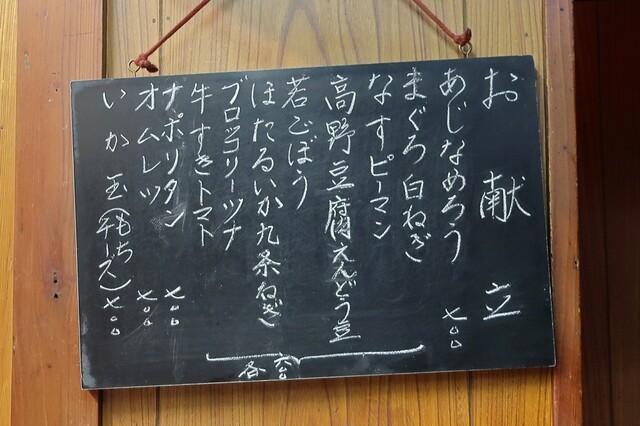 お献立
あじなめろう 七〇〇
まぐろ白ねぎ
なすピーマン
高野豆腐えんどう豆
若ごぼう
ほたるいか九条ねぎ
ブロッコリーツナ
牛すきトマト
各 六〇〇
ナポリタン 七〇〇
オムレツ 七〇〇
いか玉(もちチーズ) 七〇〇